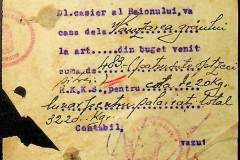 Dl.casier al Raionului, va
casa dela Vanzarea grâului
la art....din buget venit
suma de 483-(patru sute optzeci
și trei
R.K.K.S. pentru cta de 20kg.
lunar pentru salariati total
322 kg.
Contabil,
vazut